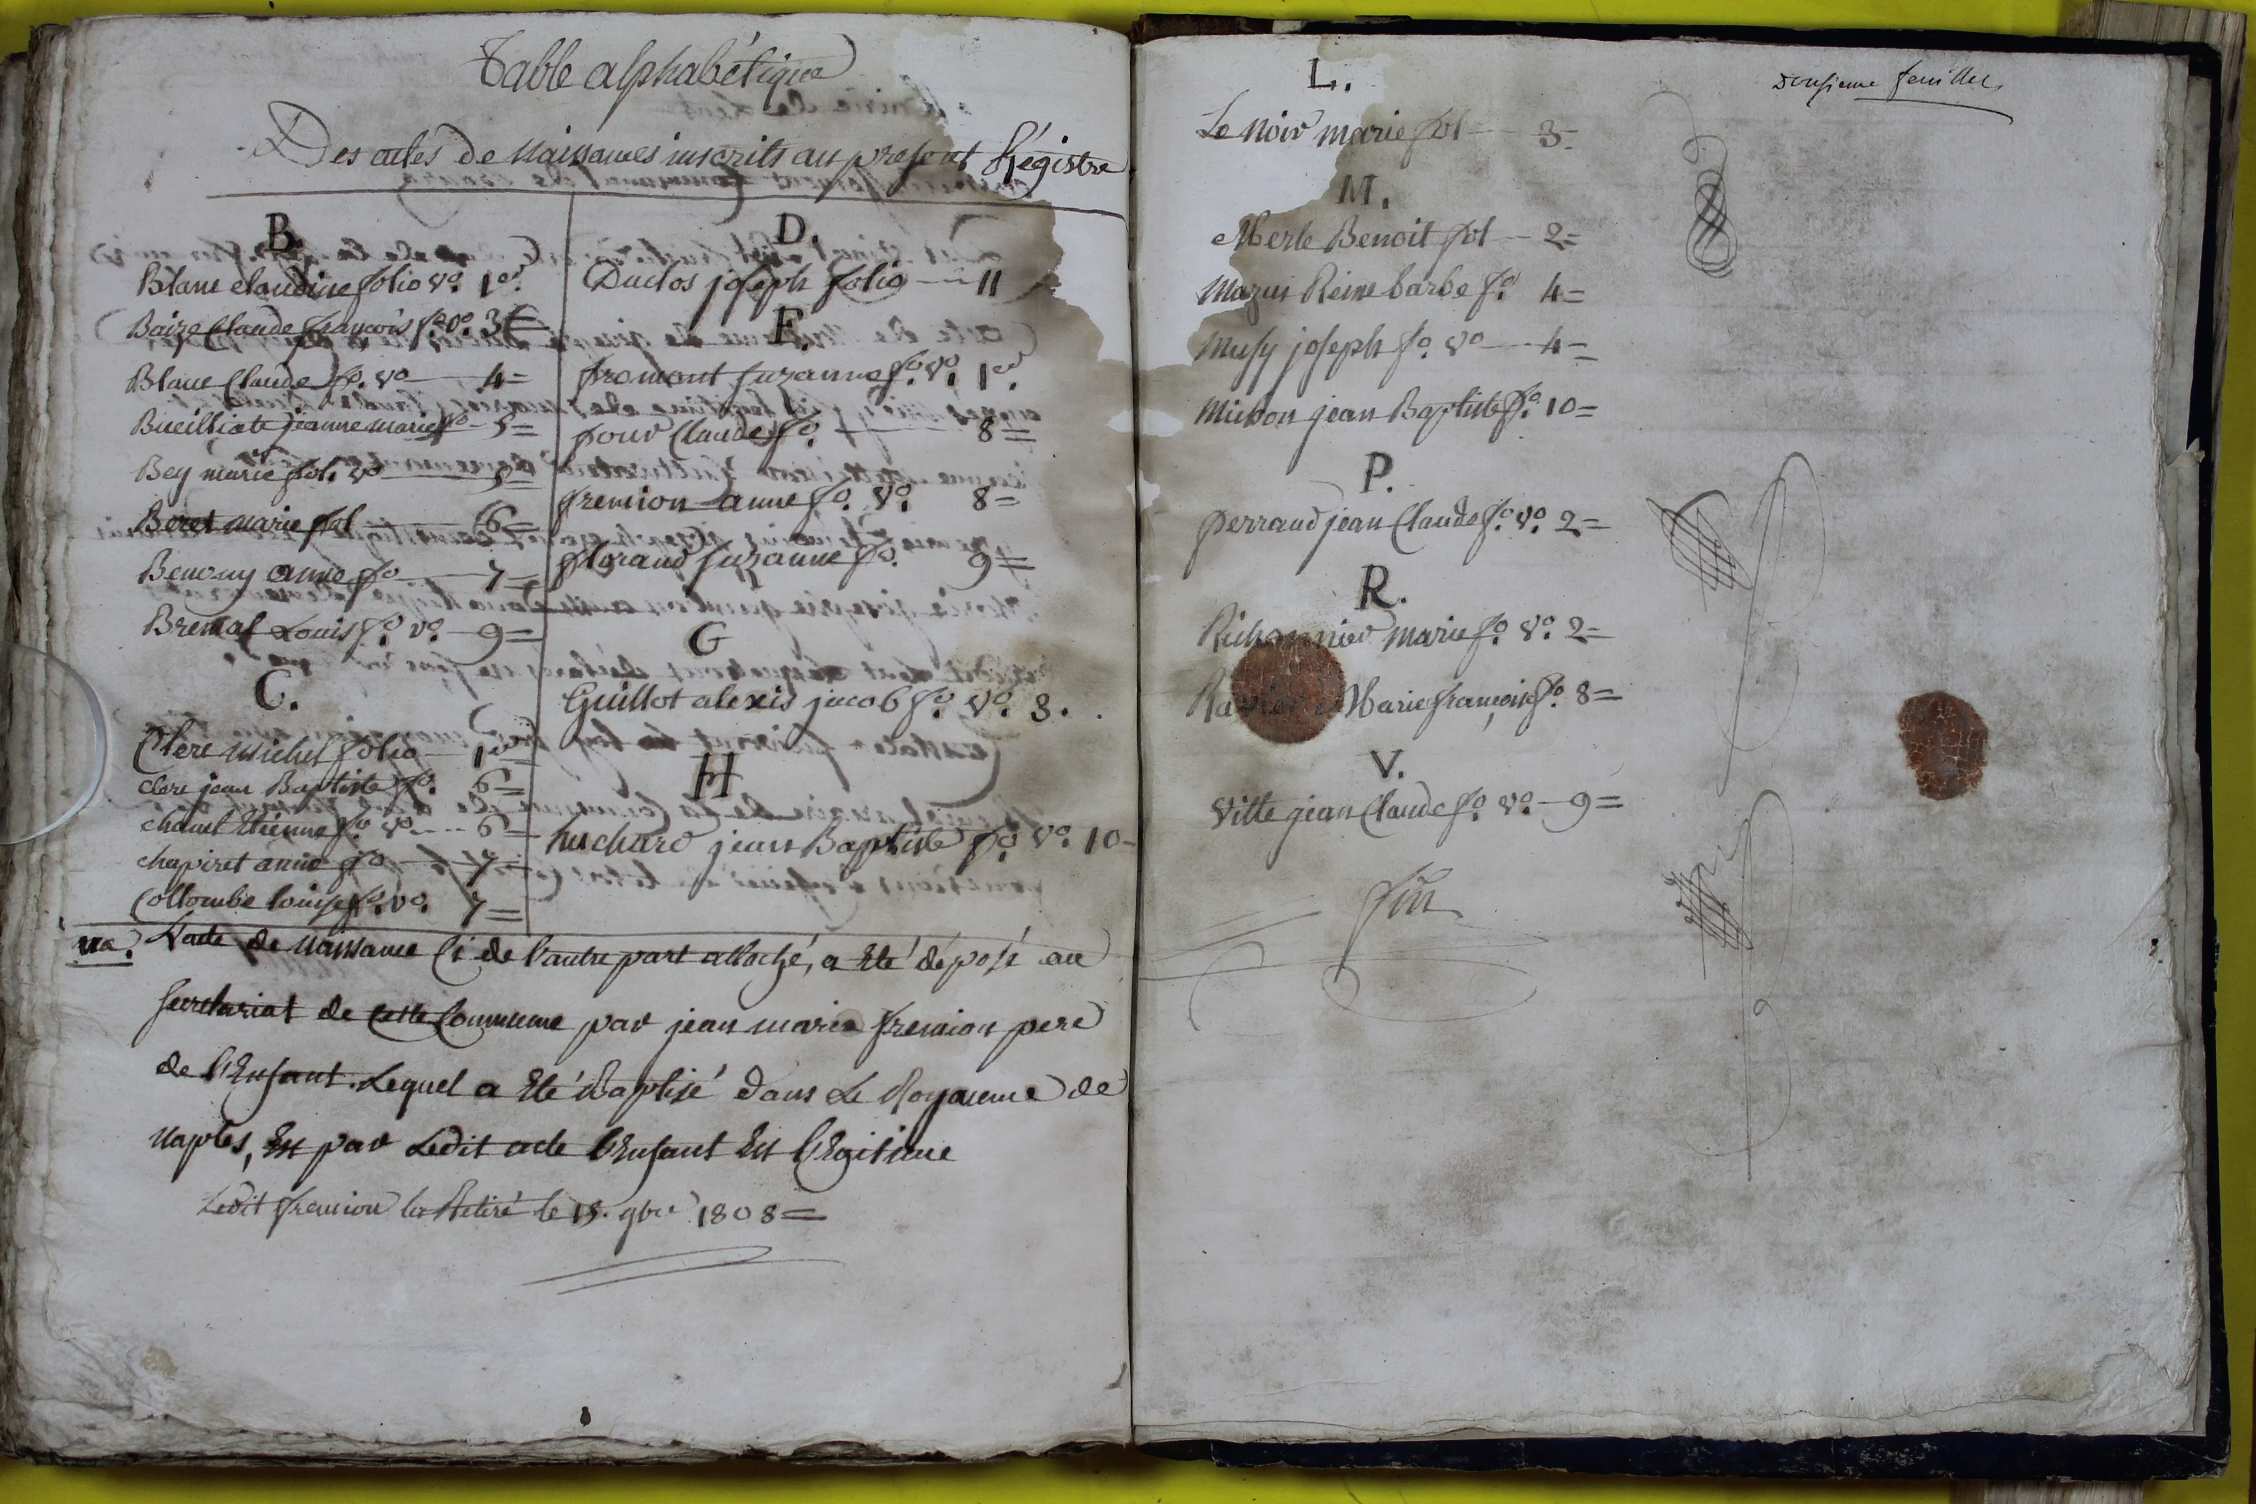 Table alphabétique
Des actes de Naissances inscrits au present Régistre
B.
Blanc claudine folio vo. 1er.
Baize Claude françois fo. vo. 3=
Blanc Claude fo. vo 4=
Bueilliate jeanne marie fo 5=
Bey marie fol. vo 5=
Beret marie fol 6=
Benony anne fo 7=
Bremal Louis fo. vo. 9=
C.
Clere michel folio 1er
clere jean Baptiste fo. 6=
chanel Etienne fo. vo. 6=
chapiret anne fo 7=
Collombe louise fo. vo. 7=
D.
Duclos joseph folio 11
F.
fromont suzanne fo. vo. 1er.
four Claude fo. 8=
fremion anne fo. vo. 8=
florand suzanne fo. 9=
G
Guillot alexis jacob fo. vo. 3.
H
huchard jean Baptiste fo. vo. 10-
na. L'acte de Naissance Ci de l'autre part attaché, a Eté déposé au
secretariat de cette Commune par jean marie fremion pere
de l'Enfant. Lequel a Eté Baptisé dans Le Royaume de
Naples, Et par Ledit acte l'Enfant Est lEgitime
Ledit fremion la Retiré le 15. 9bre 1808=
Deusieme feuillet
L.
Le Noir marie fol 3-
M.
Merle Benoit fol 2=
Mazuir Reine barbe fo. 4=
Musy joseph fo. vo 4=
Michon jean Baptiste fo. 10=
P.
perraud jean Claude fo. vo. 2=
R.
Richonnier marie fo. vo. 2=
Marie françoise fo. 8=
V.
Ville jean Claude fo. vo. 9=
fin